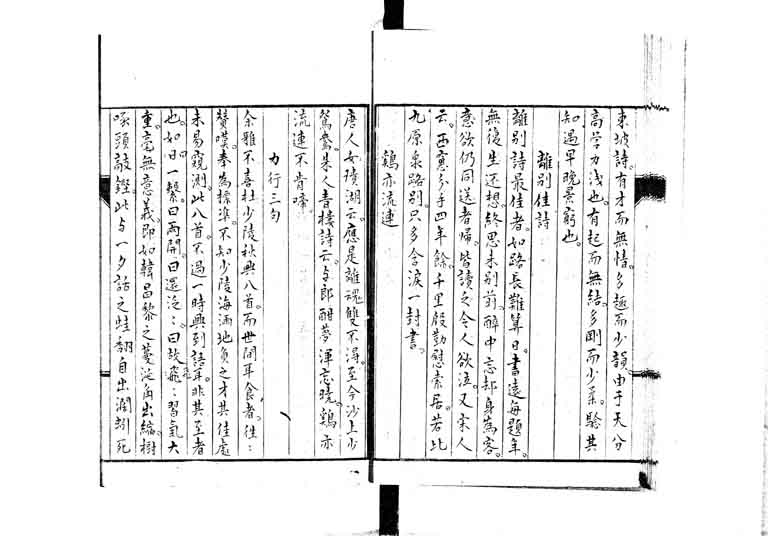 東坡詩。有才而無情。多趣而少韻由于天分
高学力浅也。有起而無結。多剛而少柔。騐其
知遇早晚景窮也。
離別佳詩
離別詩最佳者。如路長難算日。書遠每題年。
無復生还想。終思未别前。醉中忘却身為客。
意欲仍同送者帰。皆讀之令人欲泣。又宋人
云。西窓分手四年餘。千里殷勤慰索居。若比
九原泉路别。只多含淚一封書。
鷄亦流連
唐人女墳湖云。應是離魂雙不得。至今沙上少
鴛鴦。某人青楼詩云。与郎酣夢渾忘曉。鷄亦
流連不肯啼
力行三句
余雅不喜杜少陵秋興八首。而世間耳食者。往:
贊嘆。奉為標準。不知少陵海涵地負之才其佳處
未易窺測。此八首。不過一時興到語耳非其至者
也。如曰一繫曰兩開。曰還泛:曰故飛:習氣大
重。毫無意義即如韓昌黎之蔓涎角出縮。樹
啄頭敲鏗。此与一夕話之蛙翻自出濶蚓死